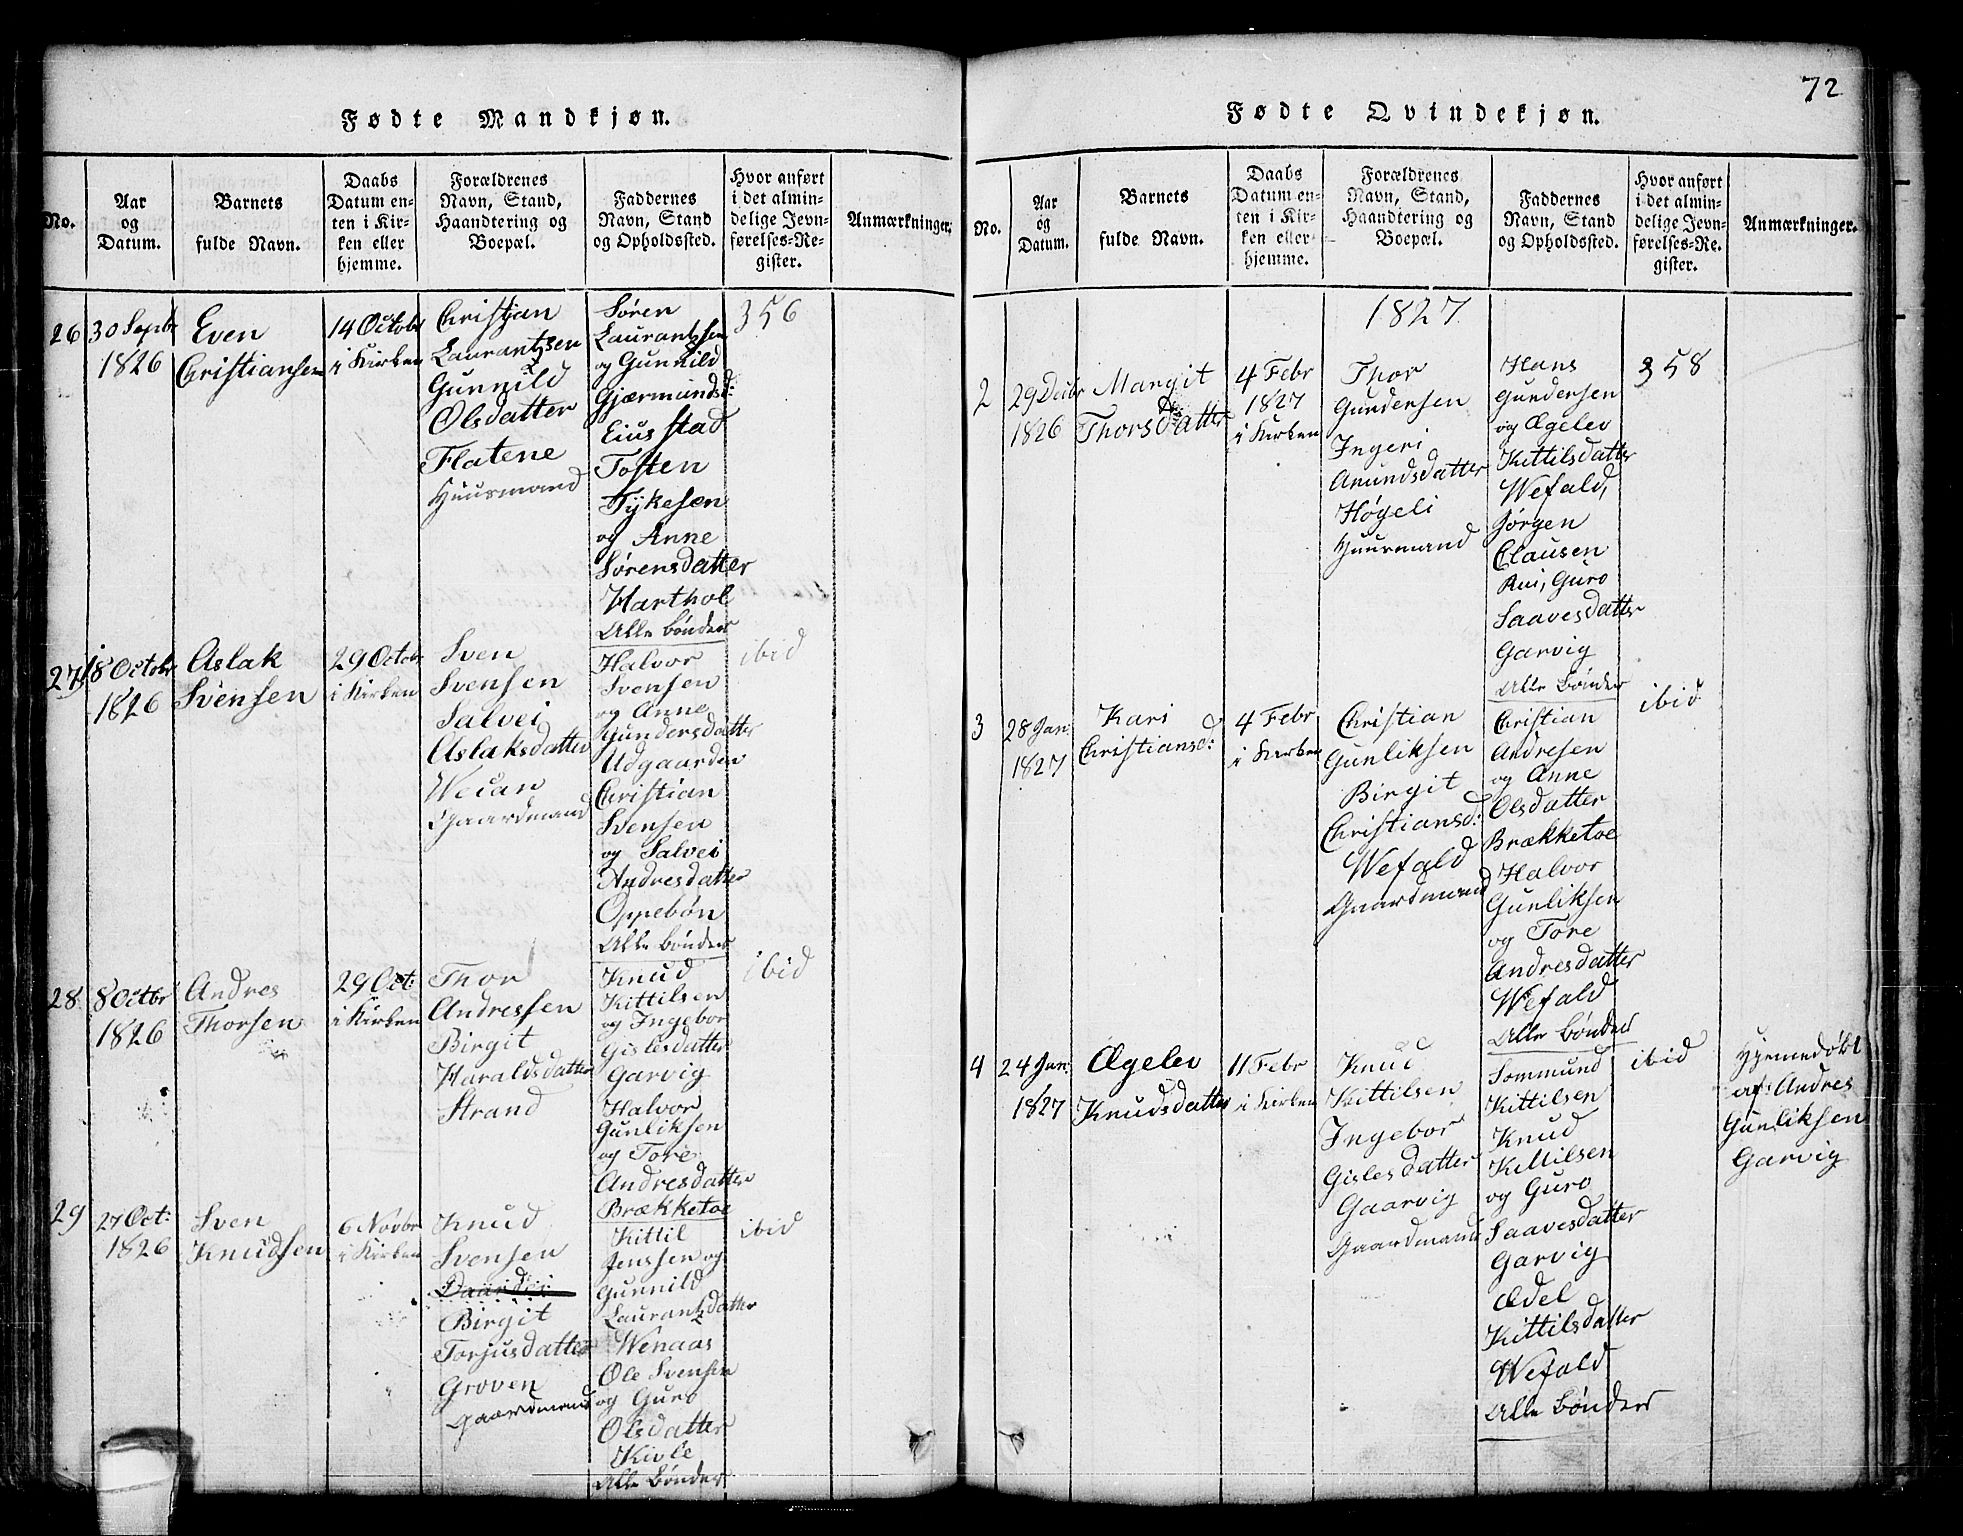 72
Fødte Mandkjøn.
No.
Aar
og
Datum.
Barnets
fulde Navn.
Daabs
Datum en-
ten i Kir-
ken eller
hjemme.
Forældrenes
Navn, Stand,
Haandtering og
Boepæl.
Faddernes
Navn, Stand
og Opholdssted.
Hvor anført
i det almin-
delige Jevn-
førelses-Re-
gister.
Anmærkninger.
26
30 Septbr
1826
Even
Christiansen
14 Octobr
i Kirken
Christjan
Laurantzsen
Gunnild
Olsdatter
Flatene
Huusmand
Søren
Laurantzsen
og Gunnild
Gjærmundsd:
Eiusstad
Tosten
Tykesen
og Anne
Sørensdatter
Harthol
Alle bønder
356
27
18 Octobr
1826
Aslak
Svensen
29 Octobr
i Kirken
Sven
Svensen
Salvei
Aslaksdatter
Weian
Gaardmand
Halvor
Svensen
og Anne
Gundersdatter
Udgaarden
Christian
Svensen
og Salvei
Andresdatter
Oppebøn
Alle bønder
ibid
28
8 Octbr
1826
Andres
Thorsen
29 Oct:
i Kirken
Thor
Andressen
Birgit
Haraldsdatter
Strand
Knud
Kittilsen
og Ingebor
Gislesdatter
Garvig
Halvor
Gunliksen
og Tore
Andresdatter
Brækketoe
ibid
29
27 Oct:
1826
Sven
Knudsen
6 Novbr
i Kirken
Knud
Svensen
Birgit
Torjusdatter
Groven
Gaardmand
Kittil
Jenssen og
Gunnild
Laurantzdatter
Wenaas
Ole Svensen
og Guro
Olsdatter
Kivle
Alle Bønder
ibid
Fødte Qvindekjøn.
No.
Aar
og
Datum.
Barnets
fulde Navn.
Daabs
Datum en-
ten i Kir-
ken eller
hjemme.
Forældrenes
Navn, Stand,
Haandtering og
Boepæl.
Faddernes
Navn, Stand
og Opholdssted.
Hvor anført
i det almin-
delige Jevn-
førelses-Re-
gister.
Anmærkninger.
1827
2
29 Decbr
1826
Margit
Thorsdatter
4 Febr
1827
i Kirken
Thor
Gundersen
Ingeri
Amundsdatter
Høgeli
Huusmand
Hans
Gundersen
og Ægelev
Kittilsdatter
Wefald,
Jørgen
Clausen
Rui, Guro
Saavesdatter
Garvig
Alle Bønder
358
3
28 Jan:
1827
Kari
Christiansd:
4 Febr
i Kirken
Christian
Gunliksen
Birgit
Christiansd:
Wefald
Gaardmand
Christian
Andresen
og Anne
Olsdatter
Brækketoe
Halvor
Gunliksen
og Tore
Andresdatter
Wefald
Alle Bønder
ibid
4
24 Jan:
1827
Ægelev
Knudsdatter
11 Febr
i Kirken
Knud
Kittilsen
Ingebor
Gislesdatter
Gaarvig
Gaardmand
Sommund
Kittilsen
Knud
Kittilsen
og Guro
Saavesdatter
Garvig
Ædel
Kittilsdatter
Wefald
Alle Bønder
ibid
Hjemedøbt
af: Andres
Gunliksen
Garvig